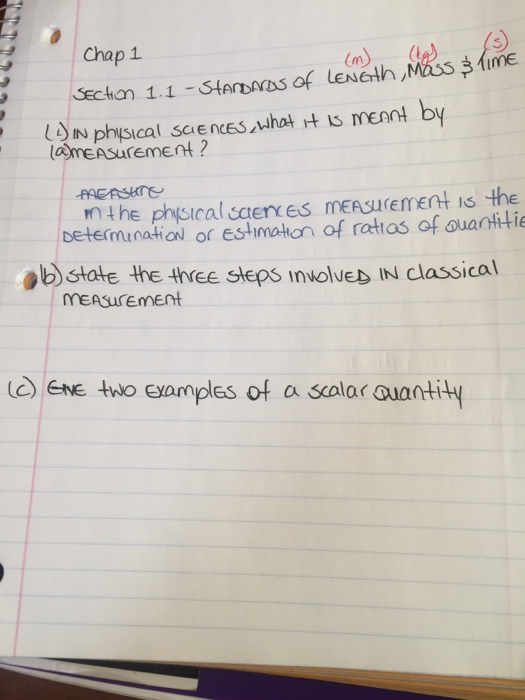 Chap 1
(m) (kg) (s)
Section 1.1 - Standards of Length, Mass & Time
(1) In physical sciences, what it is meant by
(a) measurement?
measure
In the physical sciences measurement is the
Determination or estimation of ratios of quantitie
b) state the three steps involved in classical
measurement
(c) Give two examples of a scalar quantity